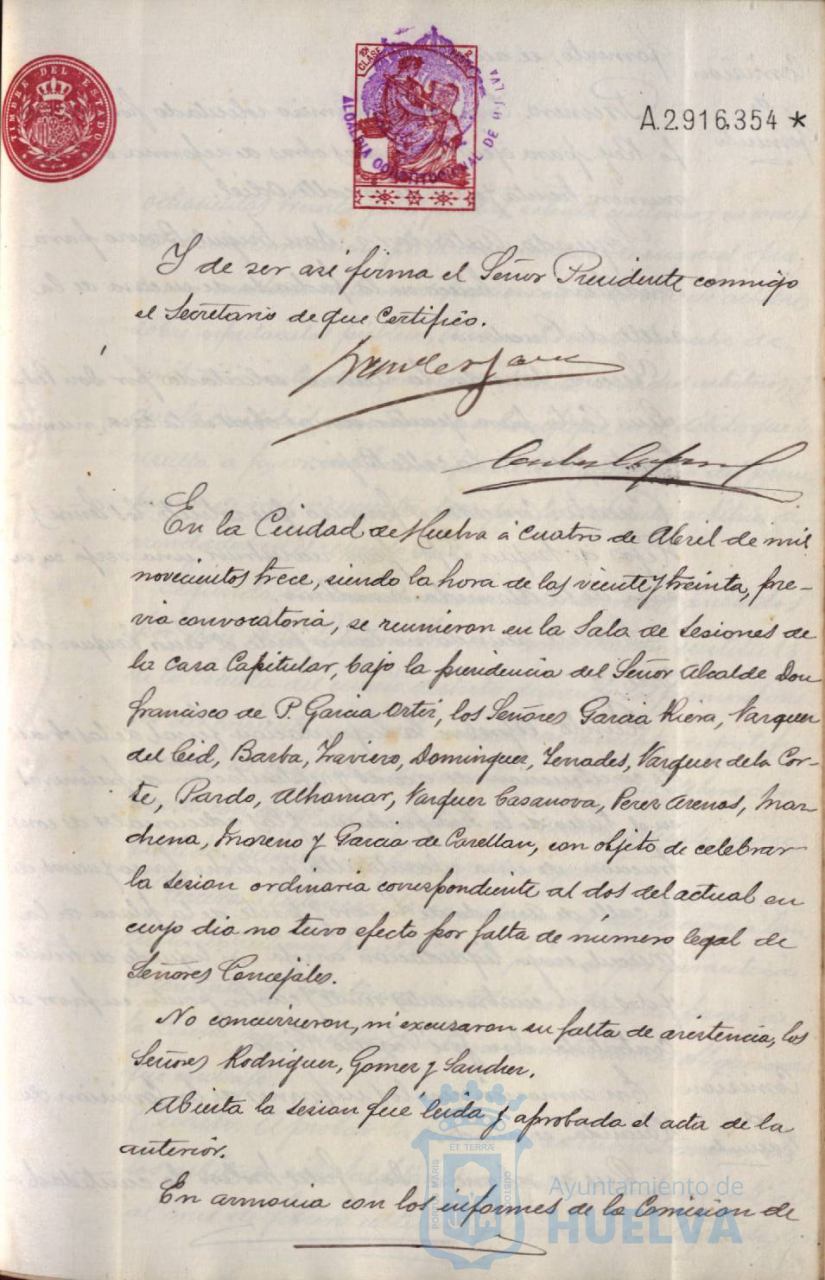 TIMBRE DEL ESTADO
CLASE
ALCALDIA CONSTITUCIONAL DE HUELVA
A.2.916.354 *
Y de ser asi firma el Señor Presidente conmigo
el Secretario de que Certifico.
En la Ciudad de Huelva á cuatro de Abril de mil
novecientos trece, siendo la hora de las veinte y treinta, pre-
via convocatoria, se reunieron en la Sala de Sesiones de
la casa Capitular, bajo la presidencia del Señor Alcalde Don
Francisco de P. Garcia Ortiz, los Señores Garcia Riera, Vazquez
del Cid, Barba, Traviero, Dominguez, Tenades, Vazquez de la Cor-
te, Pardo, Alhamar, Vazquez Casanova, Perez Arenas, Mar-
chena, Moreno y Garcia de Castellan, con objeto de celebrar
la sesion ordinaria correspondiente al dos del actual en
cuyo dia no tuvo efecto por falta de número legal de
Señores Concejales.
No concurrieron, ni excusaron su falta de asistencia, los
Señores Rodriguez, Gomez y Sanchez.
Abierta la sesion fue leida y aprobada el acta de la
anterior.
En armonia con los informes de la Comision de
ET TERRÆ
PORTUS MARIS
CUSTODIA
Ayuntamiento de
HUELVA